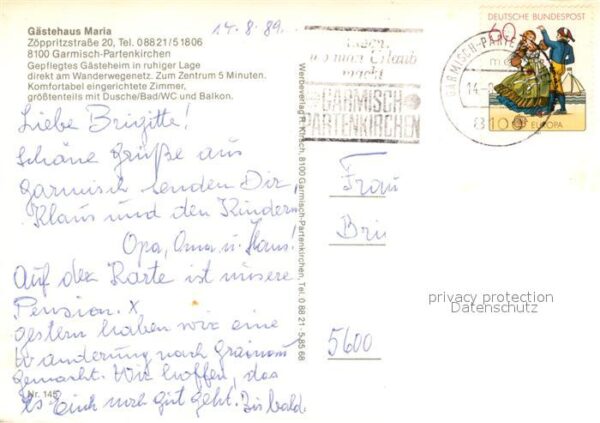 Gästehaus Maria
Zöppritzstraße 20, Tel. 08821/51806
8100 Garmisch-Partenkirchen
Gepflegtes Gästeheim in ruhiger Lage
direkt am Wanderwegenetz. Zum Zentrum 5 Minuten.
Komfortabel eingerichtete Zimmer,
größtenteils mit Dusche/Bad/WC und Balkon.
14.8.89.
Liebe Brigitte!
Schöne Grüße aus
Garmisch senden Dir,
Klaus und den Kindern
Opa, Oma u. Hans!
Auf der Karte ist unsere
Pension. X
gestern haben wir eine
Wanderung nach Grainau
gemacht. Wir hoffen, das
es Euch noch gut geht. Bis bald.
Nr. 145
Werbeverlag R. Kirsch, 8100 Garmisch-Partenkirchen, Tel. 08821-58568
GARMISCH
PARTENKIRCHEN
DEUTSCHE BUNDESPOST
60
EUROPA
GARMISCH-PARTE
14.
8100
Frau
Bri
5600
privacy protection
Datenschutz